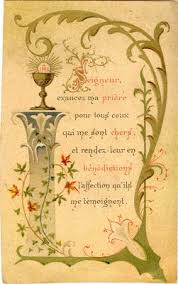 Seigneur,
exaucez ma prière
pour tous ceux
qui me sont chers,
et rendez-leur en
bénédictions
l'affection qu'ils
me témoignent.